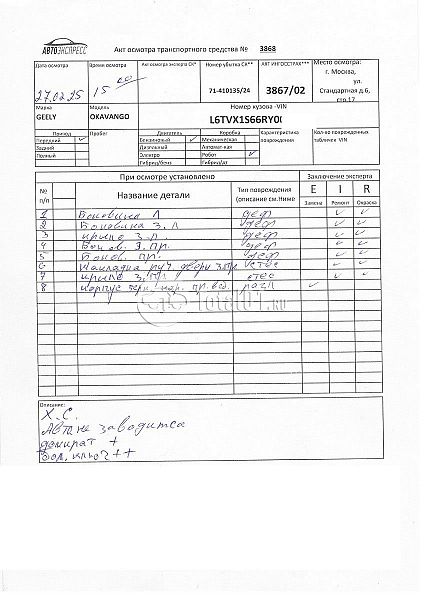 АВТОЭКСПРЕСС
Акт осмотра транспортного средства № 3868
Дата осмотра
27.02.25
Время осмотра
15 00
Акт осмотра эксперта СК*
Номер убытка СК**
71-410135/24
АЯТ ИНГОССТРАХ***
3867/02
Место осмотра:
г. Москва,
ул.
Стандартная д.6,
стр.17
Марка
GEELY
Модель
OKAVANGO
Номер кузова -VIN
L6TVX1S66RY0(
Привод
Передний ✓
Задний
Полный
Пробег
Двигатель
Бензиновый ✓
Дизельный
Электро
Гибрид/бенз
Коробка
Механическая
Автомат-кая
Робот ✓
Гибрид/аз
Характеристика
повреждения
Кол-во поврежденных
табличек VIN
При осмотре установлено
Заключение эксперта
№
п/п
Название детали
Тип повреждения
(описание см.Ниже
E I R
Замена Ремонт Окраска
1 Боковина Л деф ✓ ✓
2 Боковина З.Л деф ✓ ✓
3 крыло З.Л. деф ✓ ✓
4 Боков. З.пр. деф ✓ ✓
5 Боков. пр. деф ✓ ✓
6 Накладка руч двери з пр ✓ ✓
7 крыло З.пр ✓ ✓
8 корпус нар. пр. ✓
Total01.RU
Описание:
Х.С.
Авто не заводится
домкрат +
бал. ключ ++